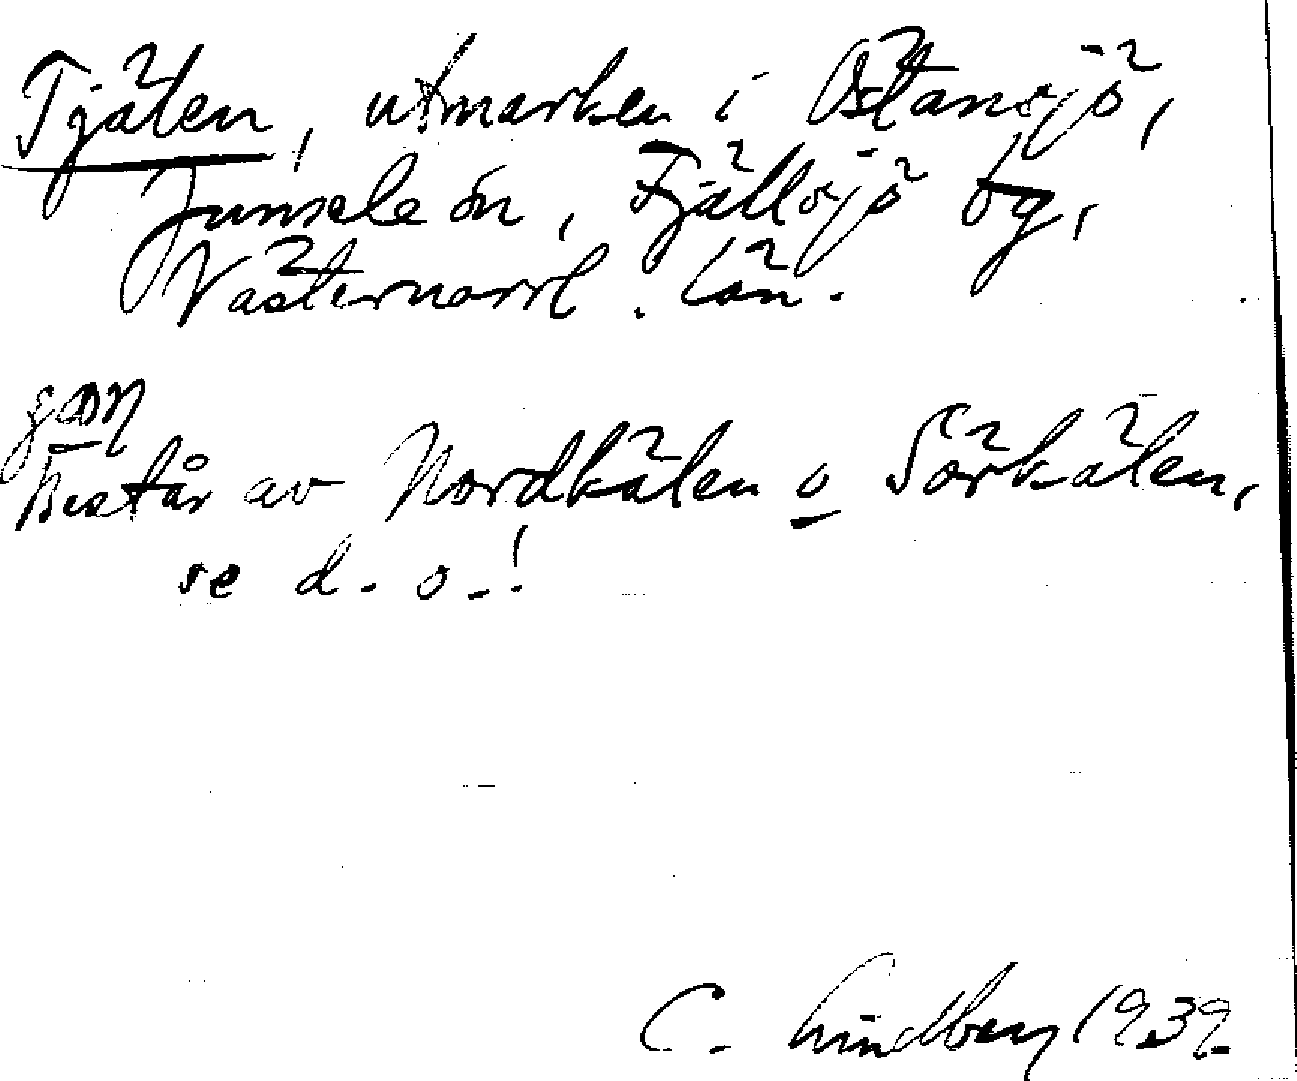 Tjälen, utmarken i Östansjö,
Junsele sn, Fjällsjö tg,
Västernorrl. län.
Består av Nordkälen o Sörkälen,
se d. o.!
C. Lindberg 1939.